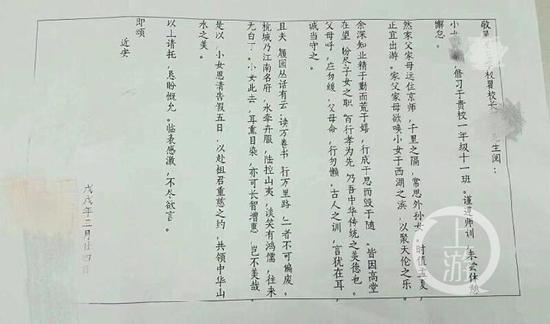 敬呈校暑校长生阅：
小女修习于贵校一年级十一班。谨遵师训，未尝休憩
懈怠。
然家父家母远住京师，千里之隔，常思外孙女。时值孟夏，
正宜出游。家父家母欲唤小女于西湖之滨，以聚天伦之乐。
余深知业精于勤而荒于嬉，行成于思而毁于随。皆因高堂
在望，纷尽子女之职。百行孝为先，乃吾中华传统之美德也。
父母呼，应勿缓，父母命，行勿懒，古人之训，言犹在耳，
诚当守之。
且夫 履园丛话有云 读万卷书，行万里路，二者不可偏废，
杭城乃江南名府，水牵卉服，陆控山夷，谈笑有鸿儒，往来
无白丁。小女此去，耳熏目染，亦可长智增惠，岂不美哉
是以，小女恩请告假五日，以赴祖君重慈之约，共领中华山
水之美。
以上请托，恳盼慨允。临表感激，不尽欲言。
即颂
近安
戊戌年三月廿四日
上游